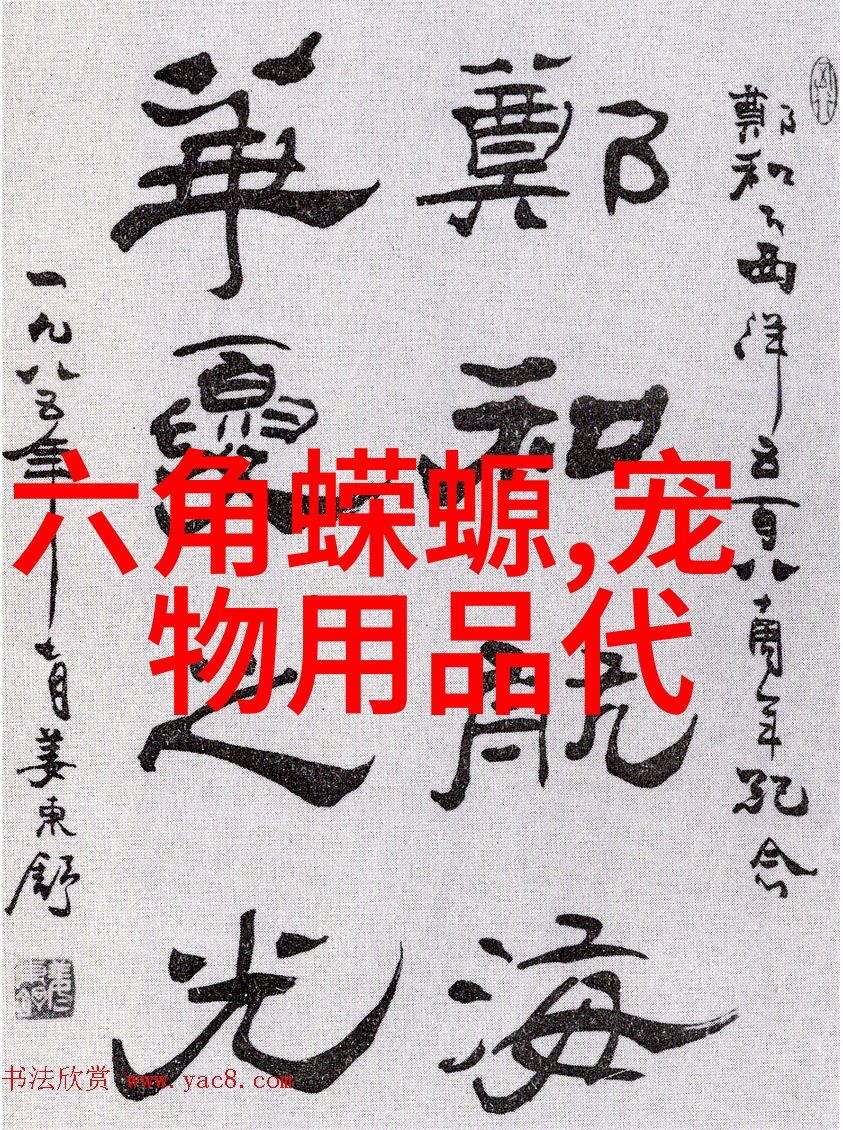 鄭和下西洋五百八十周年紀念
鄭和航海
華夏之光
一九八五年七月姜東舒
六角蝾螈,宠
物用品代
书法欣赏 www.yac8.com